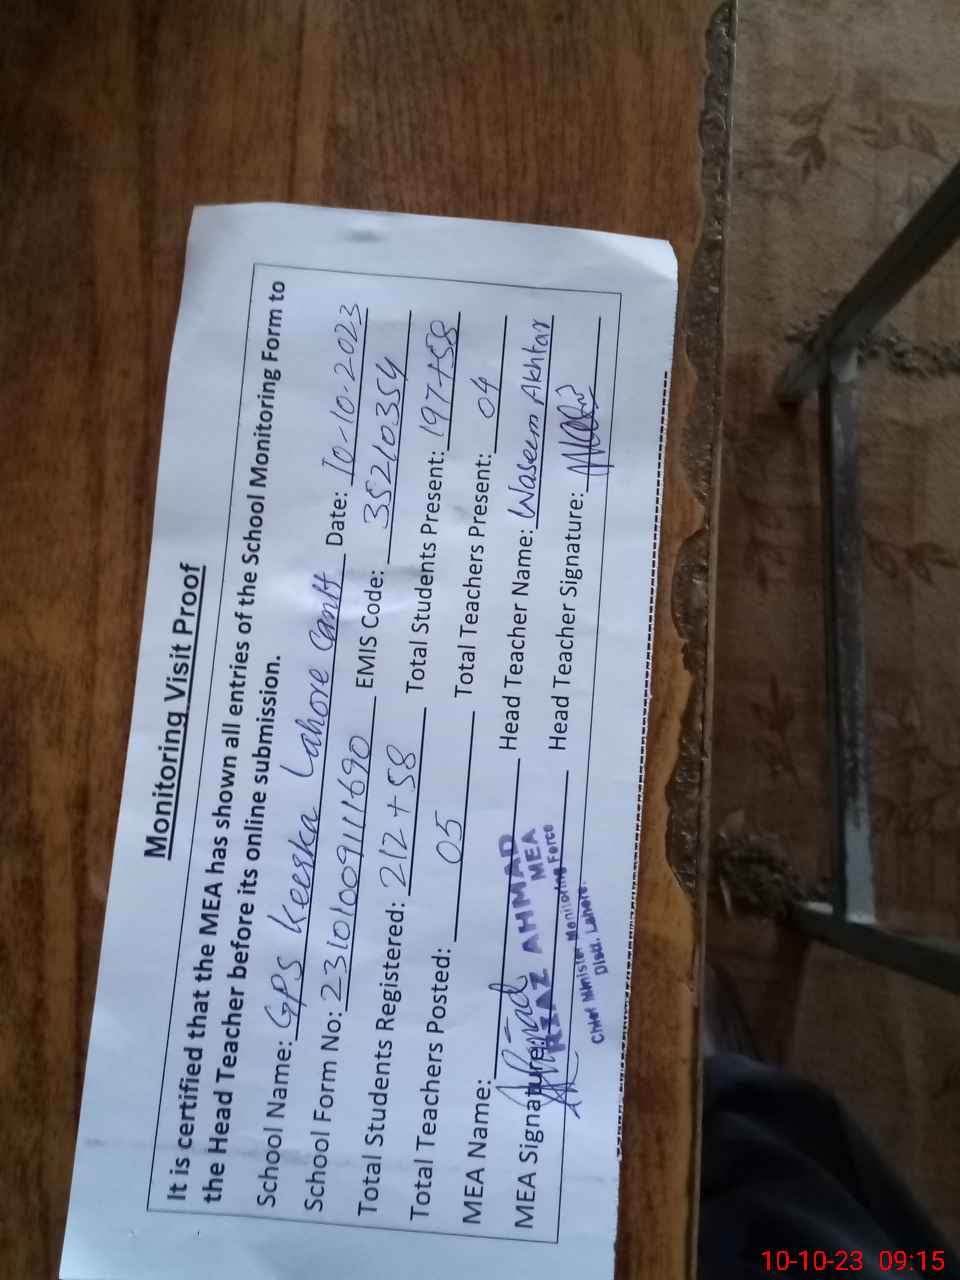 Monitoring Visit Proof
It is certified that the MEA has shown all entries of the School Monitoring Form to
the Head Teacher before its online submission.
School Name: GPS Keerka Lahore Cantt Date: 10-10-2023
School Form No: 231010091111690 EMIS Code: 35210354
Total Students Registered: 212+58 Total Students Present: 197+58
Total Teachers Posted: 05 Total Teachers Present: 04
MEA Name: Head Teacher Name: Waseem Akhtar
MEA Signature: Head Teacher Signature:
AHMAD
MEA
Chief Minister Monitoring Force
Distt. Lahore.
10-10-23 09:15